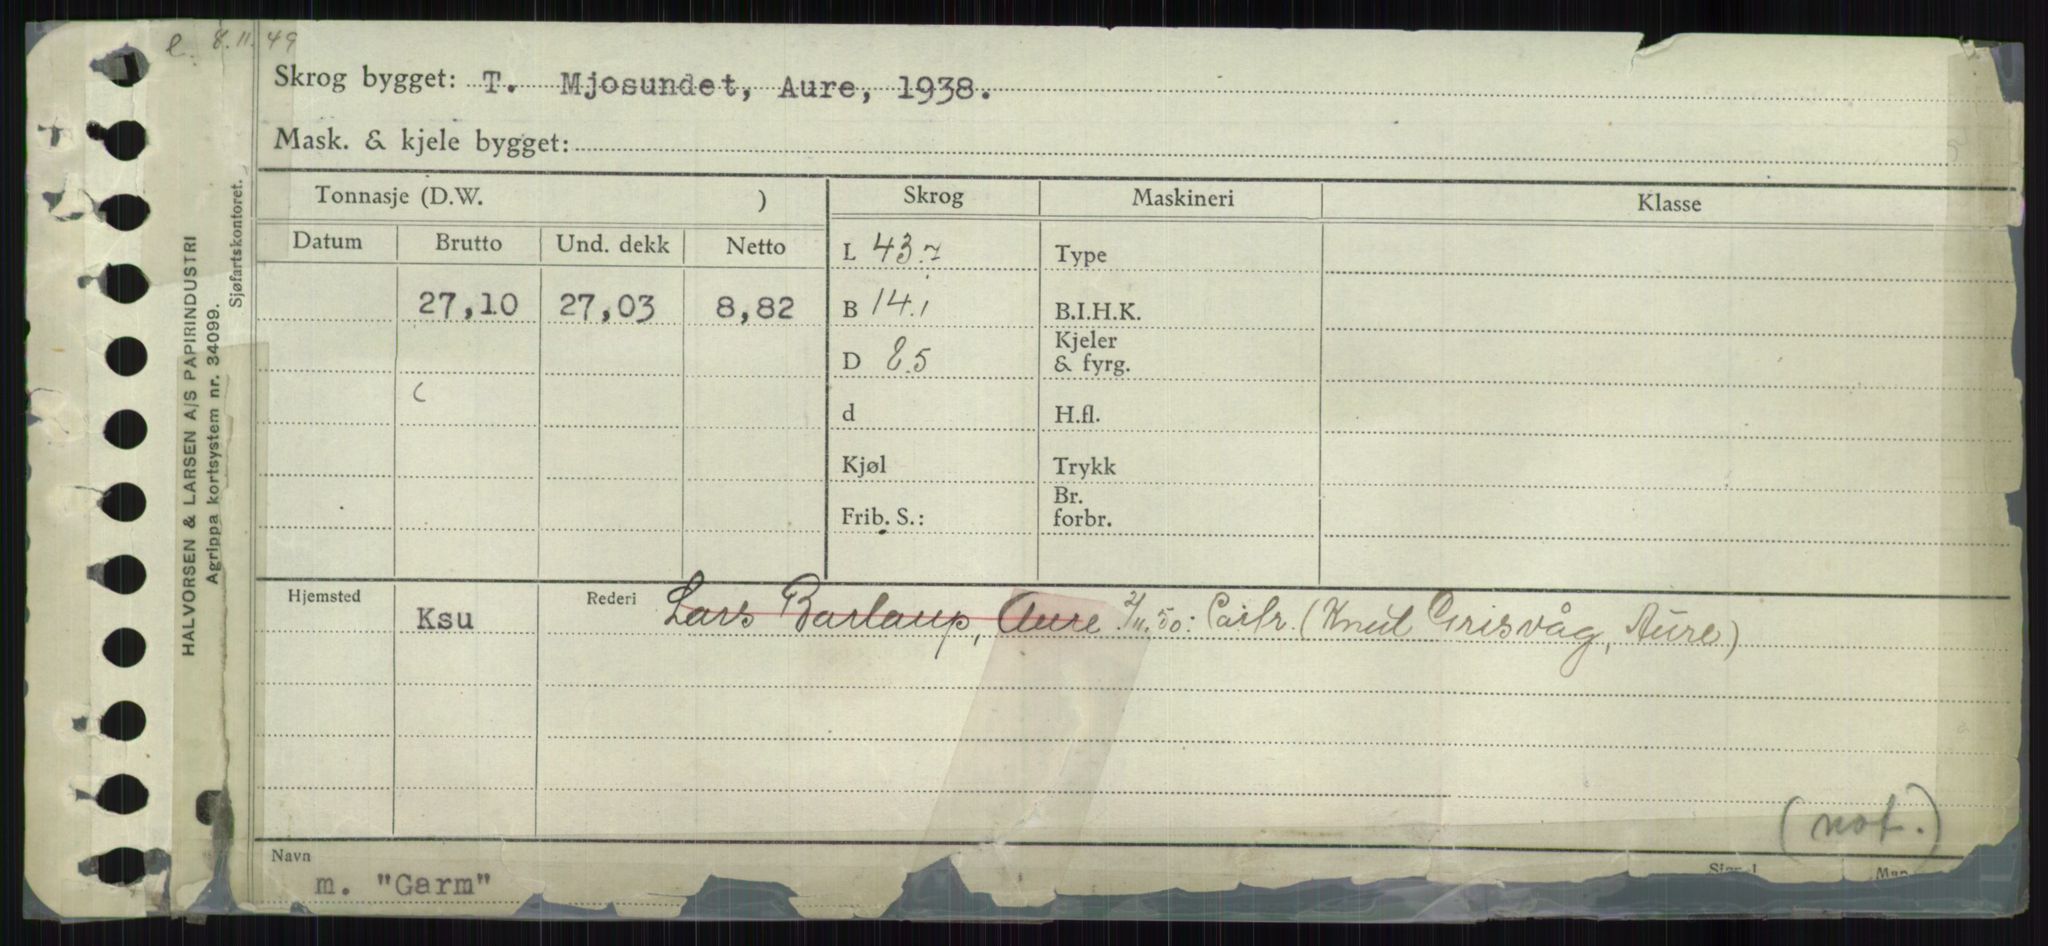 8.11.49
Skrog bygget: T. Mjosundet, Aure, 1938.
Mask. & kjele bygget:
HALVORSEN & LARSEN A/S PAPIRINDUSTRI
Agrippa kortsystem nr. 34099.
Sjøfartskontoret.
Tonnasje (D.W. ) Skrog Maskineri Klasse
Datum Brutto Und. dekk Netto L 43.7 Type
27,10 27,03 8,82 B 14.1 B.I.H.K.
D 8.5 Kjeler & fyrg.
d H.fl.
Kjøl Trykk
Frib. S.: Br. forbr.
Hjemsted Ksu Rederi Lars Barlaup, Aure 2/11.50: Partr. (Knut Grisvåg, Aure)
(not.)
Navn
m. "Garm"